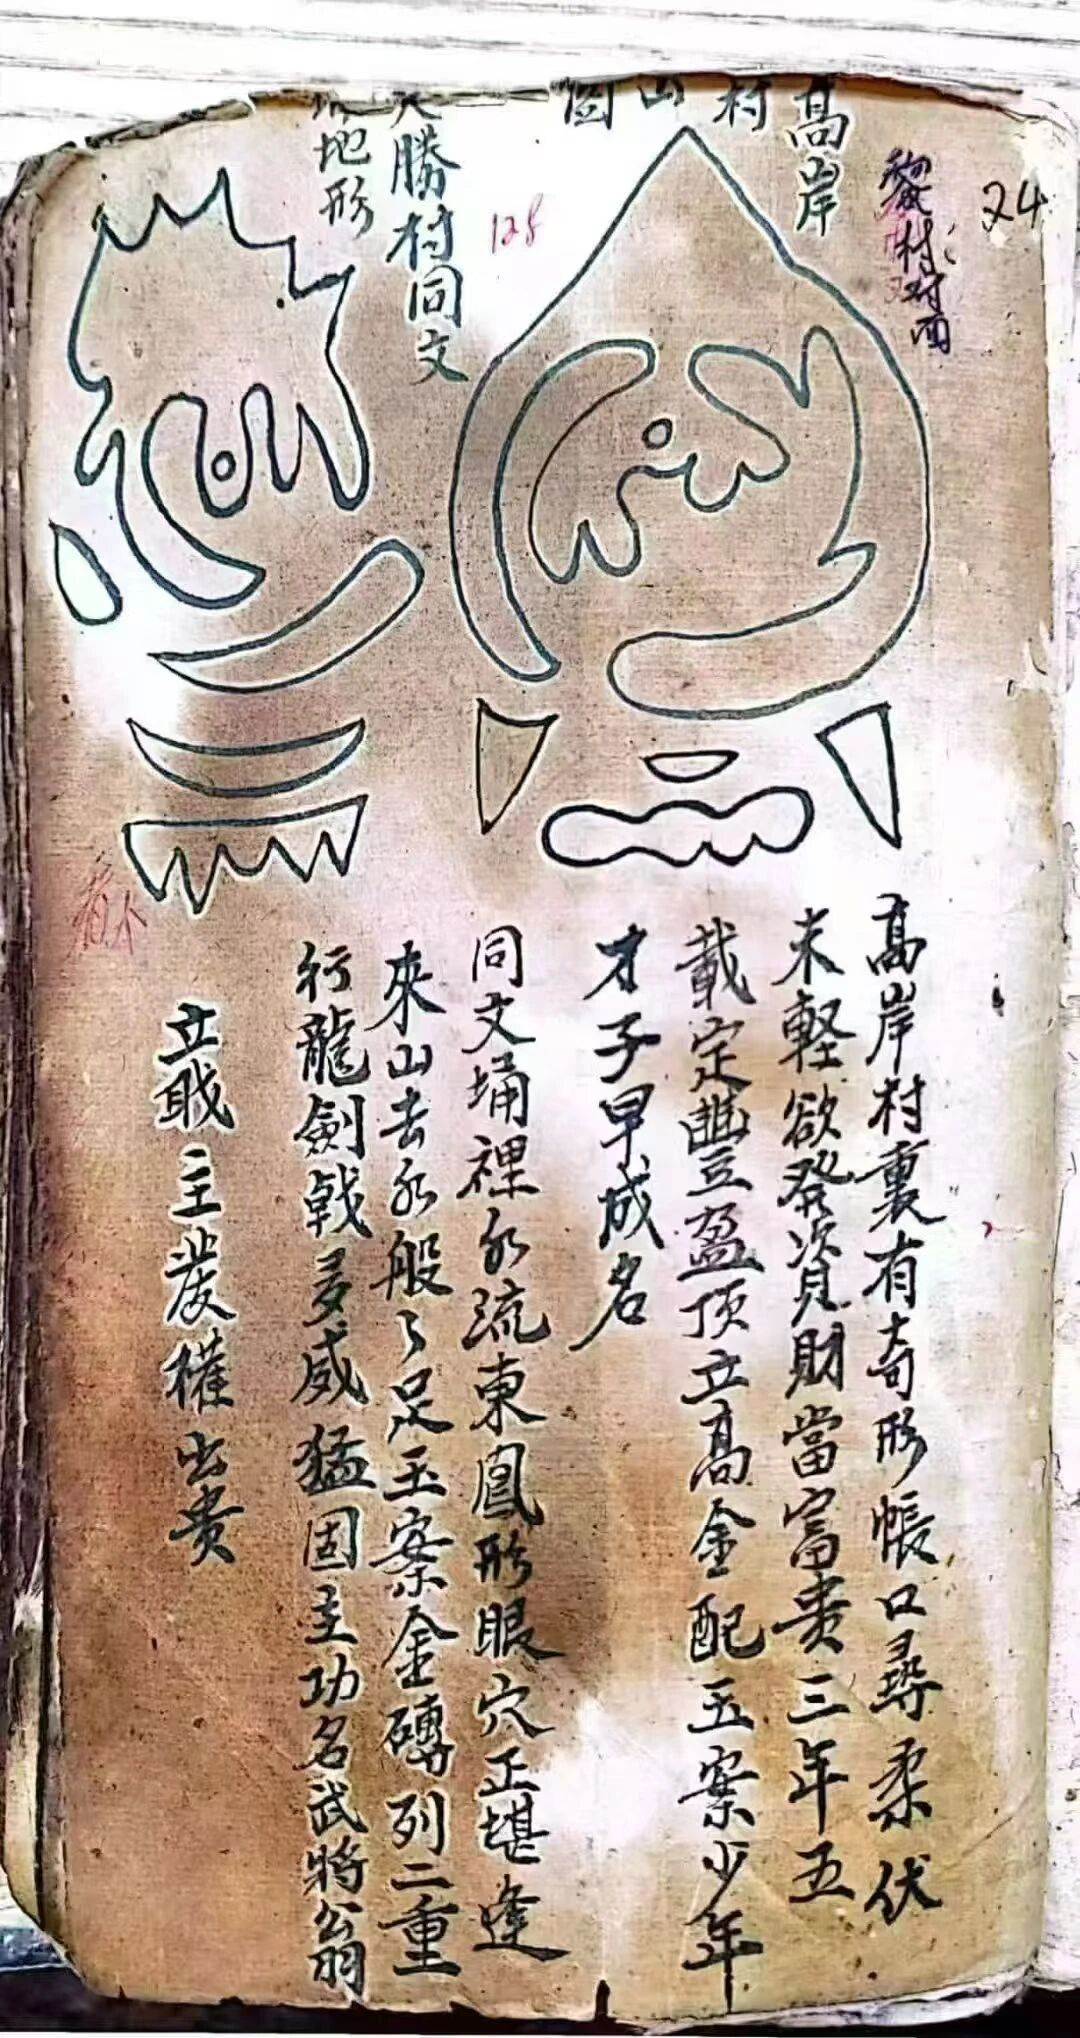 24
黎村对面
高岸
村
山
图
128
大勝村同文
地形
高岸村裏有奇形帳口尋柔伏
未軽欲發資財當富貴三年五
載定豐盈顶立高金配玉案少年
才子早成名
同文埇裡水流東鳳形眼穴正堪逢
來山去水般々足玉案金磚列二重
行龍劍戟多威猛固主功名武將翁
立戢主發權出贵